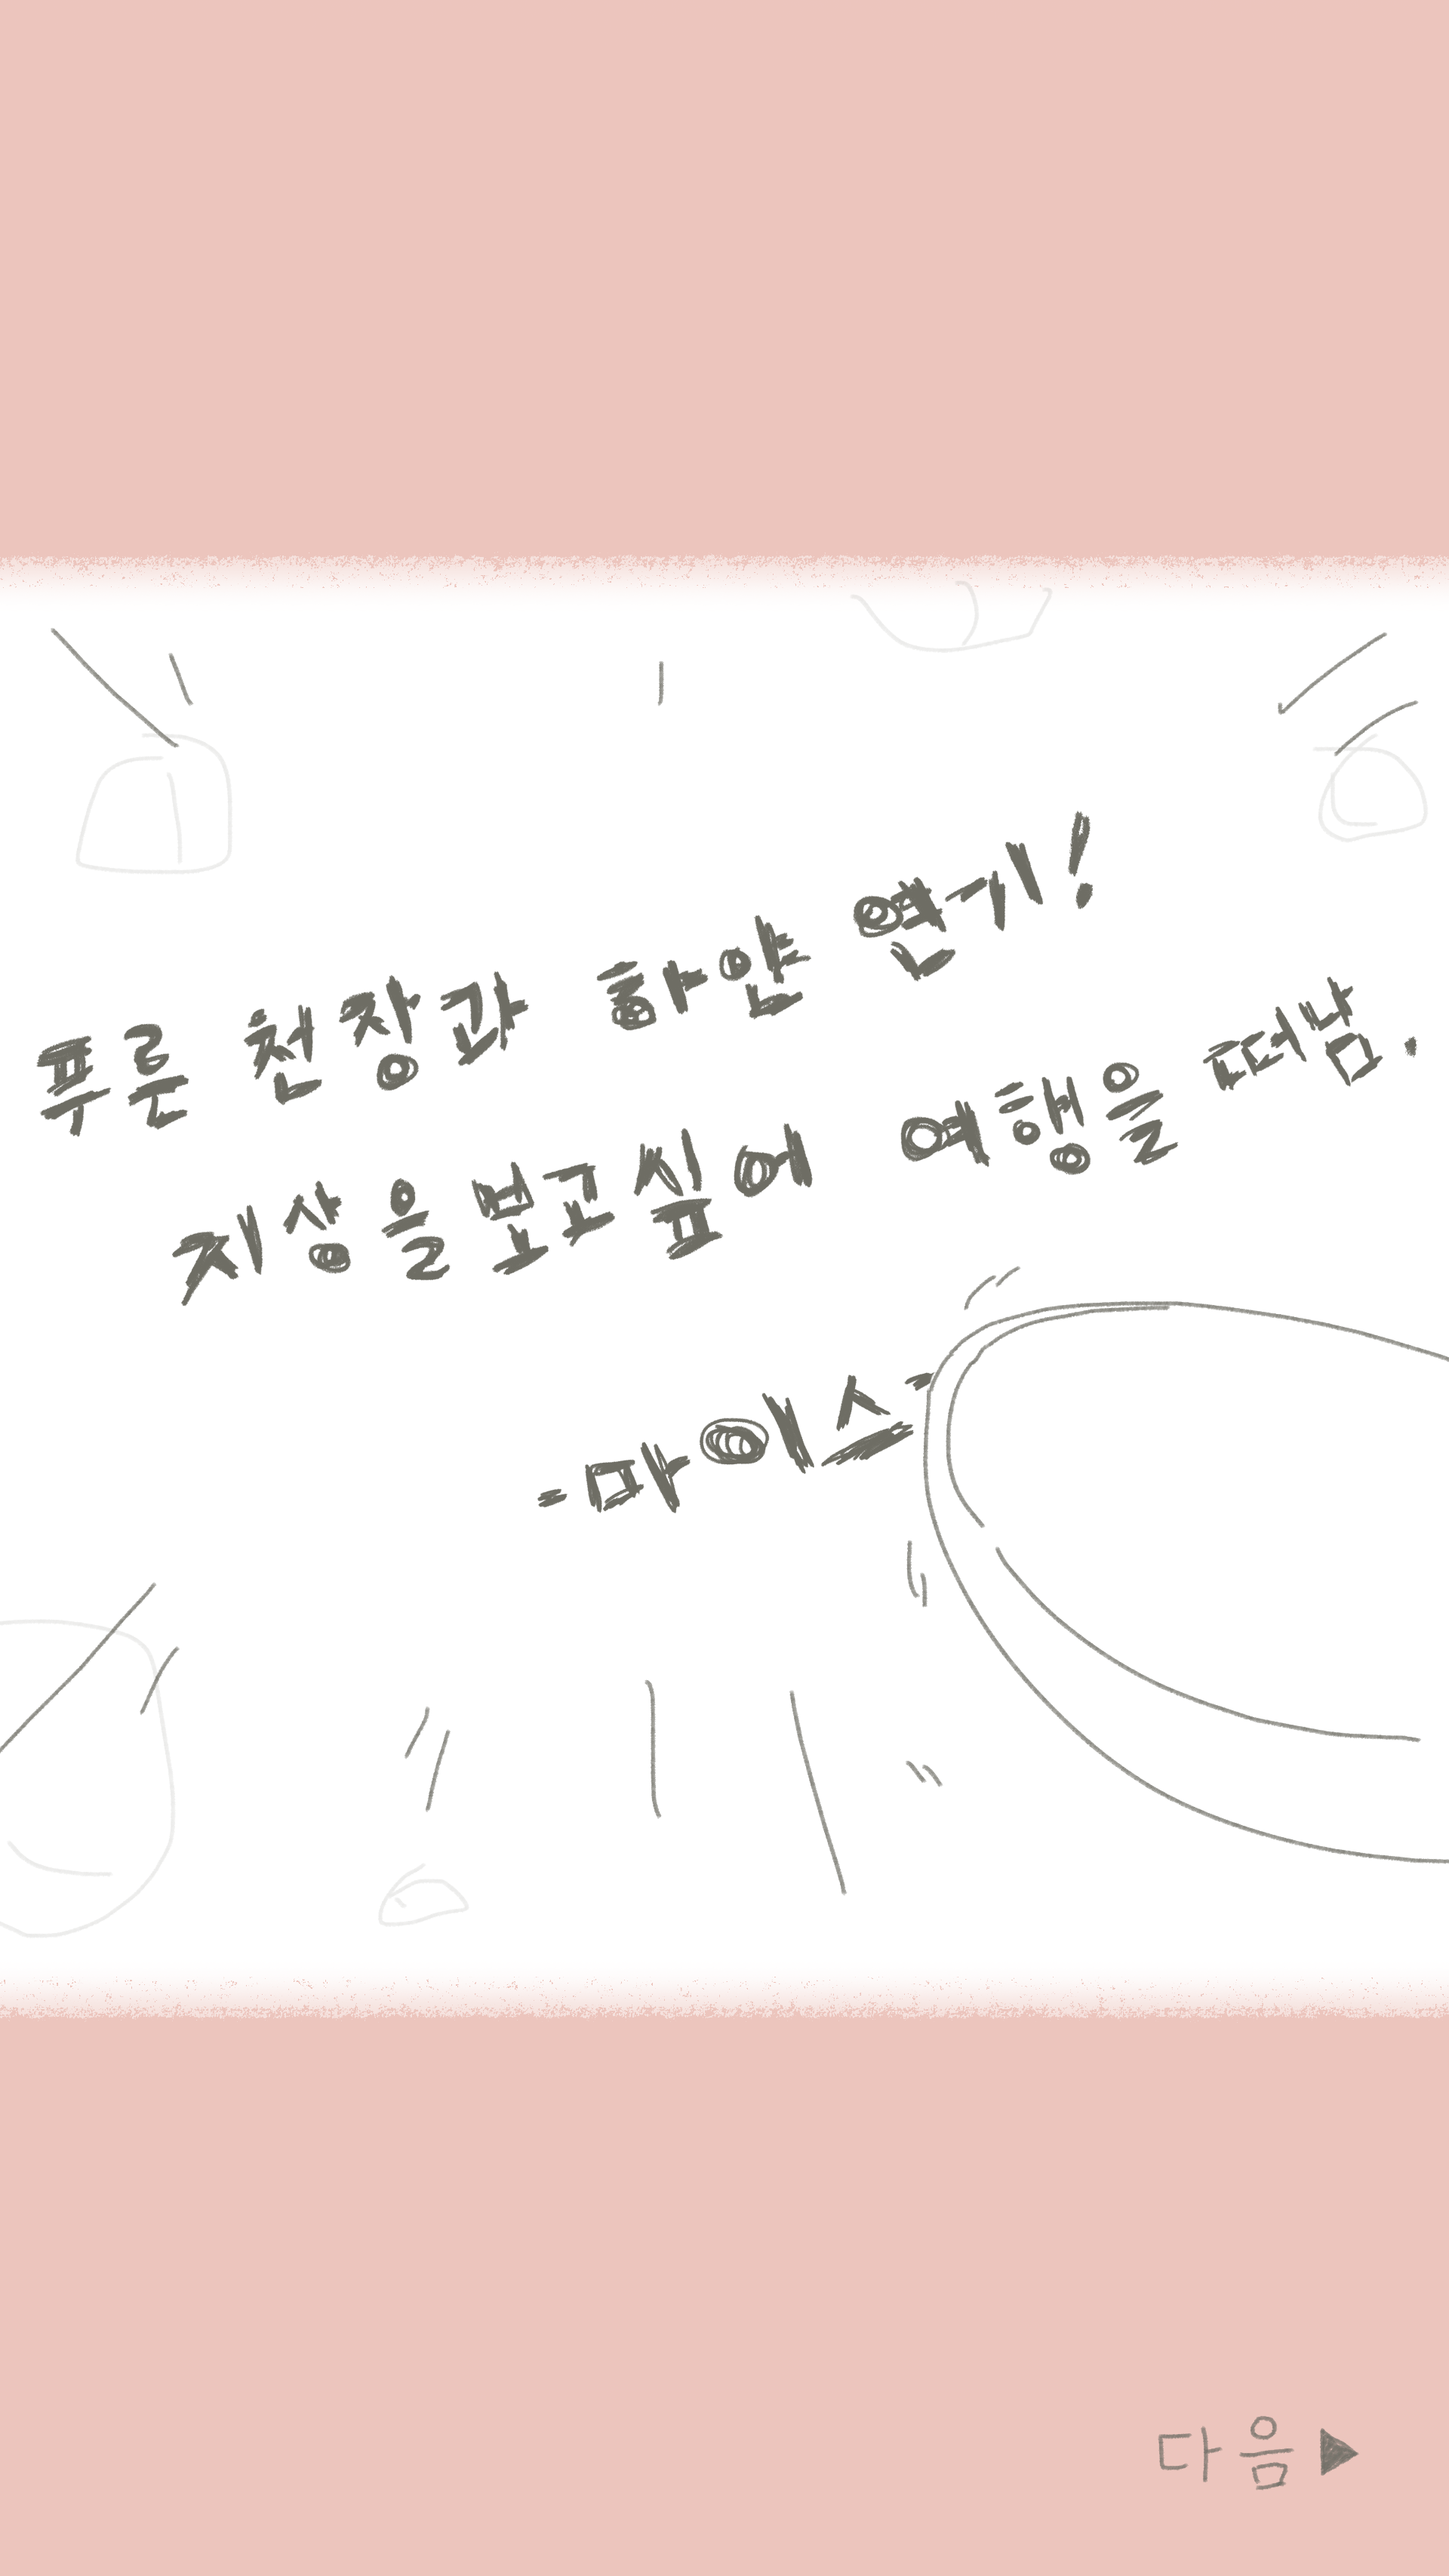 푸른 천장과 하얀 연기!
지상을보고싶어 여행을 떠남.
-마이스-
다음▶